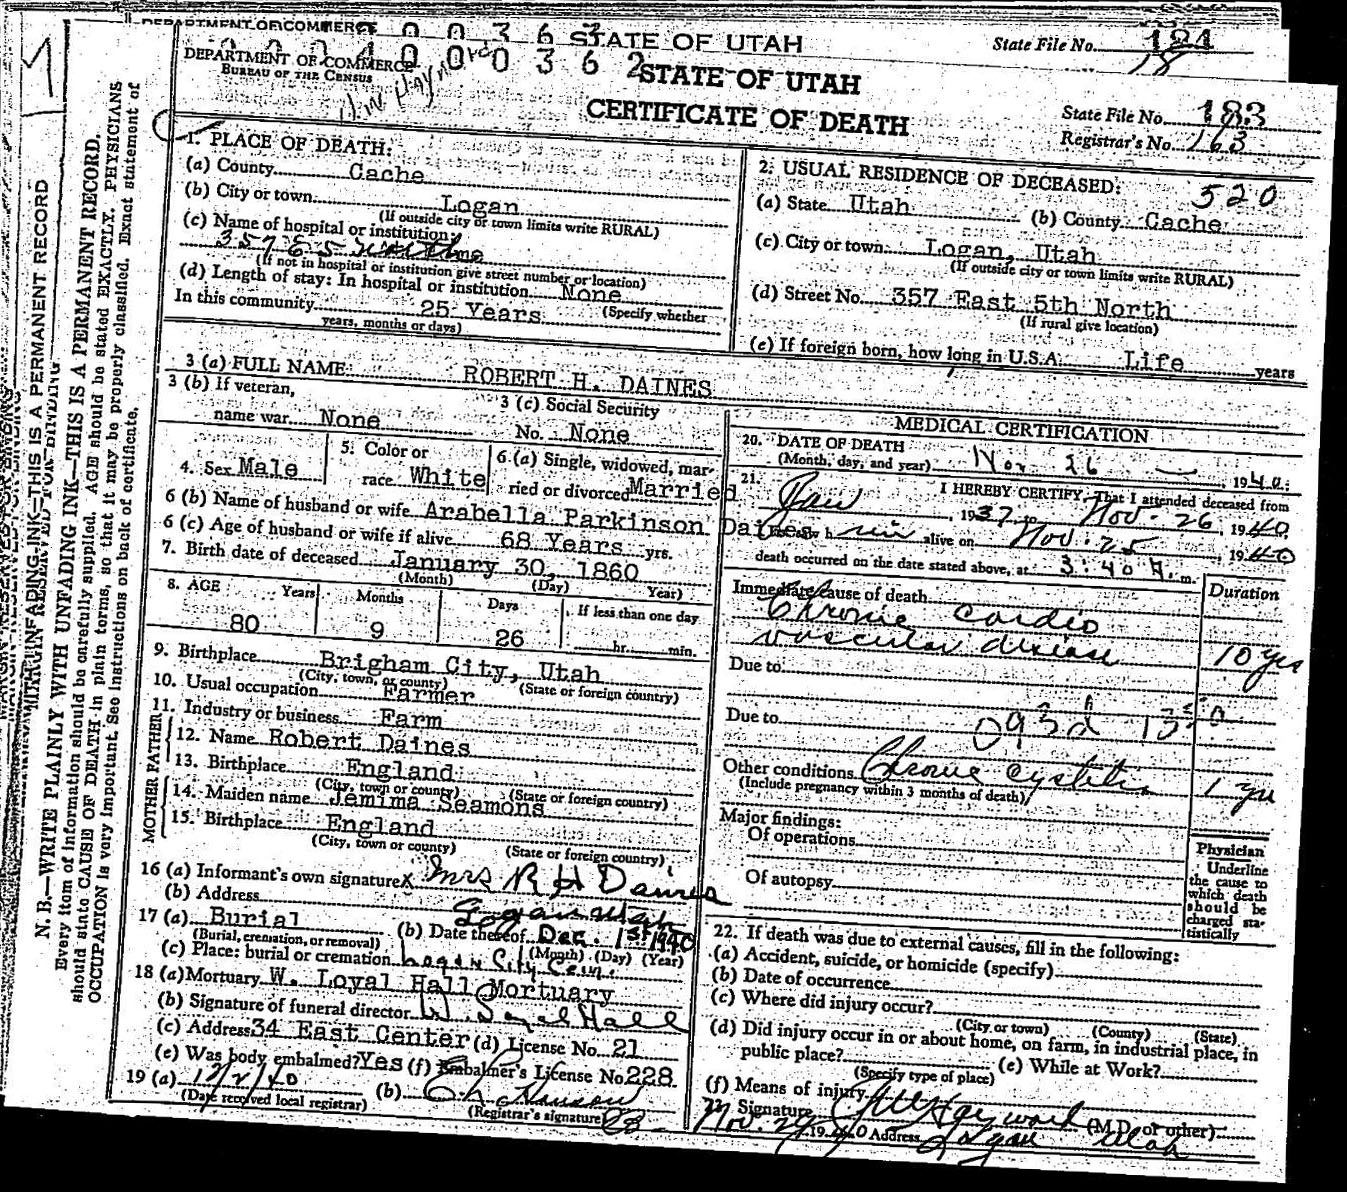 DEPARTMENT OF COMMERCE
STATE OF UTAH
State File No. 184
DEPARTMENT OF COMMERCE
BUREAU OF THE CENSUS
STATE OF UTAH
CERTIFICATE OF DEATH
State File No. 183
Registrar's No. 163
1. PLACE OF DEATH:
(a) County Cache
(b) City or town Logan
(If outside city or town limits write RURAL)
(c) Name of hospital or institution:
357 E 5
(If not in hospital or institution give street number or location)
(d) Length of stay: In hospital or institution None
In this community 25 Years (Specify whether
years, months or days)
2. USUAL RESIDENCE OF DECEASED:
520
(a) State Utah (b) County Cache
(c) City or town Logan, Utah
(If outside city or town limits write RURAL)
(d) Street No. 357 East 5th North
(If rural give location)
(e) If foreign born, how long in U.S.A. Life years
3 (a) FULL NAME: ROBERT H. DAINES
3 (b) If veteran,
name war None
3 (c) Social Security
No. None
4. Sex Male
5. Color or
race White
6 (a) Single, widowed, mar-
ried or divorced Married
6 (b) Name of husband or wife Arabella Parkinson Daines
6 (c) Age of husband or wife if alive 68 Years yrs.
7. Birth date of deceased January 30, 1860
(Month) (Day) Year)
8. AGE Years Months Days If less than one day
80 9 26 hr. min.
9. Birthplace Brigham City, Utah
(City, town, or county) (State or foreign country)
10. Usual occupation Farmer
11. Industry or business Farm
FATHER
12. Name Robert Daines
13. Birthplace England
(City, town or county) (State or foreign country)
MOTHER
14. Maiden name Jemima Seamons
15. Birthplace England
(City, town or county) (State or foreign country)
16 (a) Informant's own signature X Mrs R H Daines
(b) Address Logan Utah
17 (a) Burial (b) Date thereof Dec. 1st 1940
(Burial, cremation, or removal) (Month) (Day) (Year)
(c) Place: burial or cremation Logan City Cem.
18 (a) Mortuary W. Loyal Hall Mortuary
(b) Signature of funeral director W. Loyal Hall
(c) Address 34 East Center (d) License No. 21
(e) Was body embalmed? Yes (f) Embalmer's License No. 228
19 (a) 12/2/40 (b)
(Date received local registrar) (Registrar's signature)
MEDICAL CERTIFICATION
20. DATE OF DEATH
(Month, day, and year) Nov 26 1940.
21. I HEREBY CERTIFY, That I attended deceased from
Jan, 1937 to Nov. 26, 1940
I last saw h im alive on Nov. 25, 1940
death occurred on the date stated above, at 3:40 A. m.
Immediate cause of death Duration
Chronic cardio
vascular disease 10 yrs
Due to
Due to
Other conditions Chronic cystitis 1 yr
(Include pregnancy within 3 months of death)
Major findings:
Of operations
Of autopsy
Physician
Underline
the cause to
which death
should be
charged sta-
tistically
22. If death was due to external causes, fill in the following:
(a) Accident, suicide, or homicide (specify)
(b) Date of occurrence
(c) Where did injury occur?
(City or town) (County) (State)
(d) Did injury occur in or about home, on farm, in industrial place, in
public place? (e) While at Work?
(Specify type of place)
(f) Means of injury
Signature Hayward (M.D. or other)
Nov. 29, 1940 Address Logan Utah
N. B.—WRITE PLAINLY WITH UNFADING INK—THIS IS A PERMANENT RECORD.
Every item of information should be carefully supplied. AGE should be stated EXACTLY. PHYSICIANS
should state CAUSE OF DEATH in plain terms, so that it may be properly classified. Exact statement of
OCCUPATION is very important. See instructions on back of certificate.